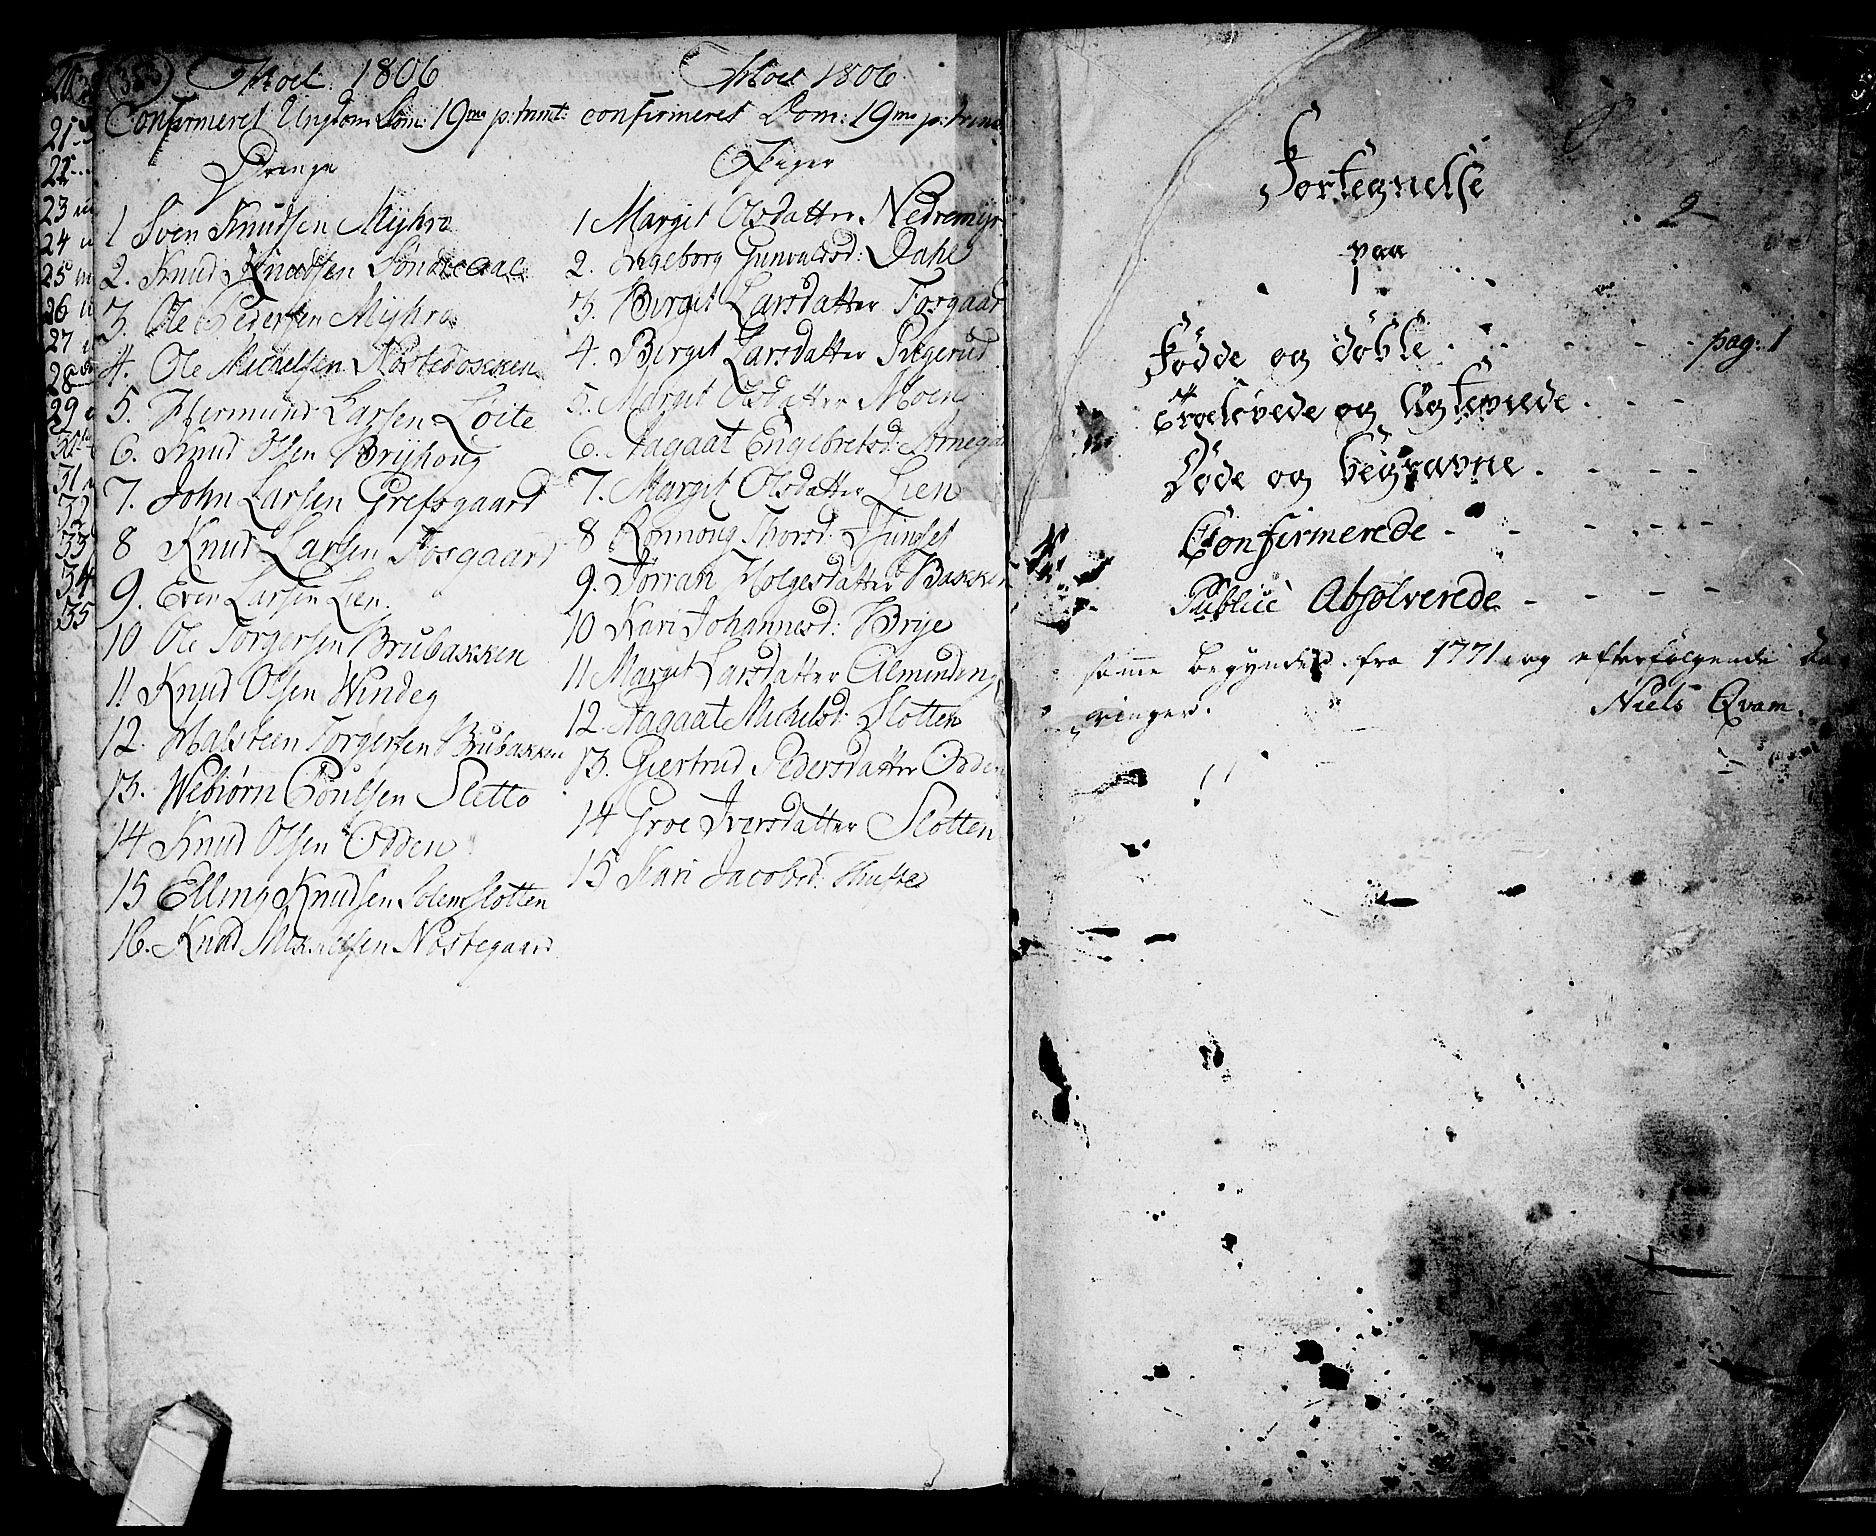 Thoel 1806
Confirmeret Ungdom Dom: 19me p: trinit:
Drenge
1 Sven Knudsen Mijhra
2. Knud Knudsen
3. Ole Pedersen Mijhra
4. Ole Michelsen
5. Hermund Larsen Loite
6. Knud Olsen Brijhoug
7. John Larsen Grefsgaard
8 Knud Larsen Fosgaard
9. Even Larsen Lien
10 Ole Torgersen Brubakken
11 Knud Olsen Windeg
12. Halsteen Torgersen Brubakken
13. Webiørn Poulsen Sletto
14 Knud Olsen Odden
15 Elling Knudsen Solemslotten
16. Knud Mikkelsen Nostegaard
Thoel 1806
confirmeret Dom: 19me p: trinit
Piger
1 Margit Olsdatter Nedremijr
2. Ingeborg Gunvaldsd: Dahl
3. Birgit Larsdatter Fosgaar
4. Birgit Larsdatter
5. Margit Olsdatter Moen
6. Aagaat Engebretsd:
7. Margit Olsdatter Lien
8 Ronnong Thorsd:
9. Jorran Holgesdatter Bakken
10 Kari Johannesd: Brije
11 Margit Larsdatter Alminding
12. Aagaat Michelsd: Slotten
13. Giertrud Pedersdatter Odden
14 Groe Iversdatter Slotten
15 Kari Jacobsd: Thufta
21
22
23
24
25
26
27
28
29
31
32
33
34
35
Fortegnelse
2
paa
Fødde og døbte - - - - pag: 1
Troelovede og Ægteviede - - -
Døde og begravne - - - -
Confirmerede - - - - -
Publicè Absolverede - - - -
samme begynder fra 1771 og efterfølgende
ringer.
Niels Qvam.